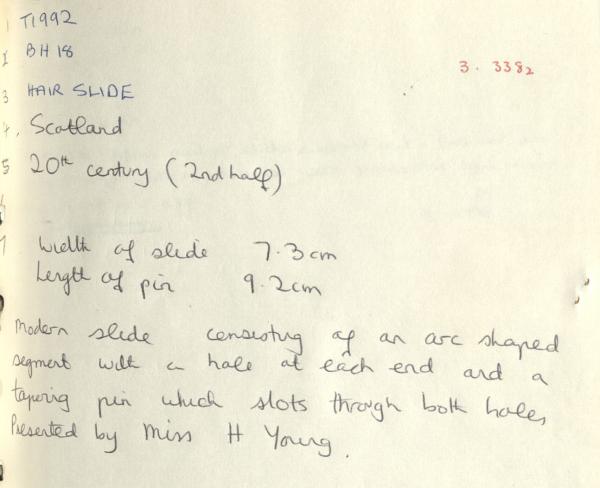 1 T1992
2 BH 18
3. 3382
3 HAIR SLIDE
4. Scotland
5 20th century (2nd half)
Width of slide 7.3cm
Length of pin 9.2cm
Modern slide consisting of an arc shaped
segment with a hole at each end and a
tapering pin which slots through both holes,
Presented by Miss H Young.